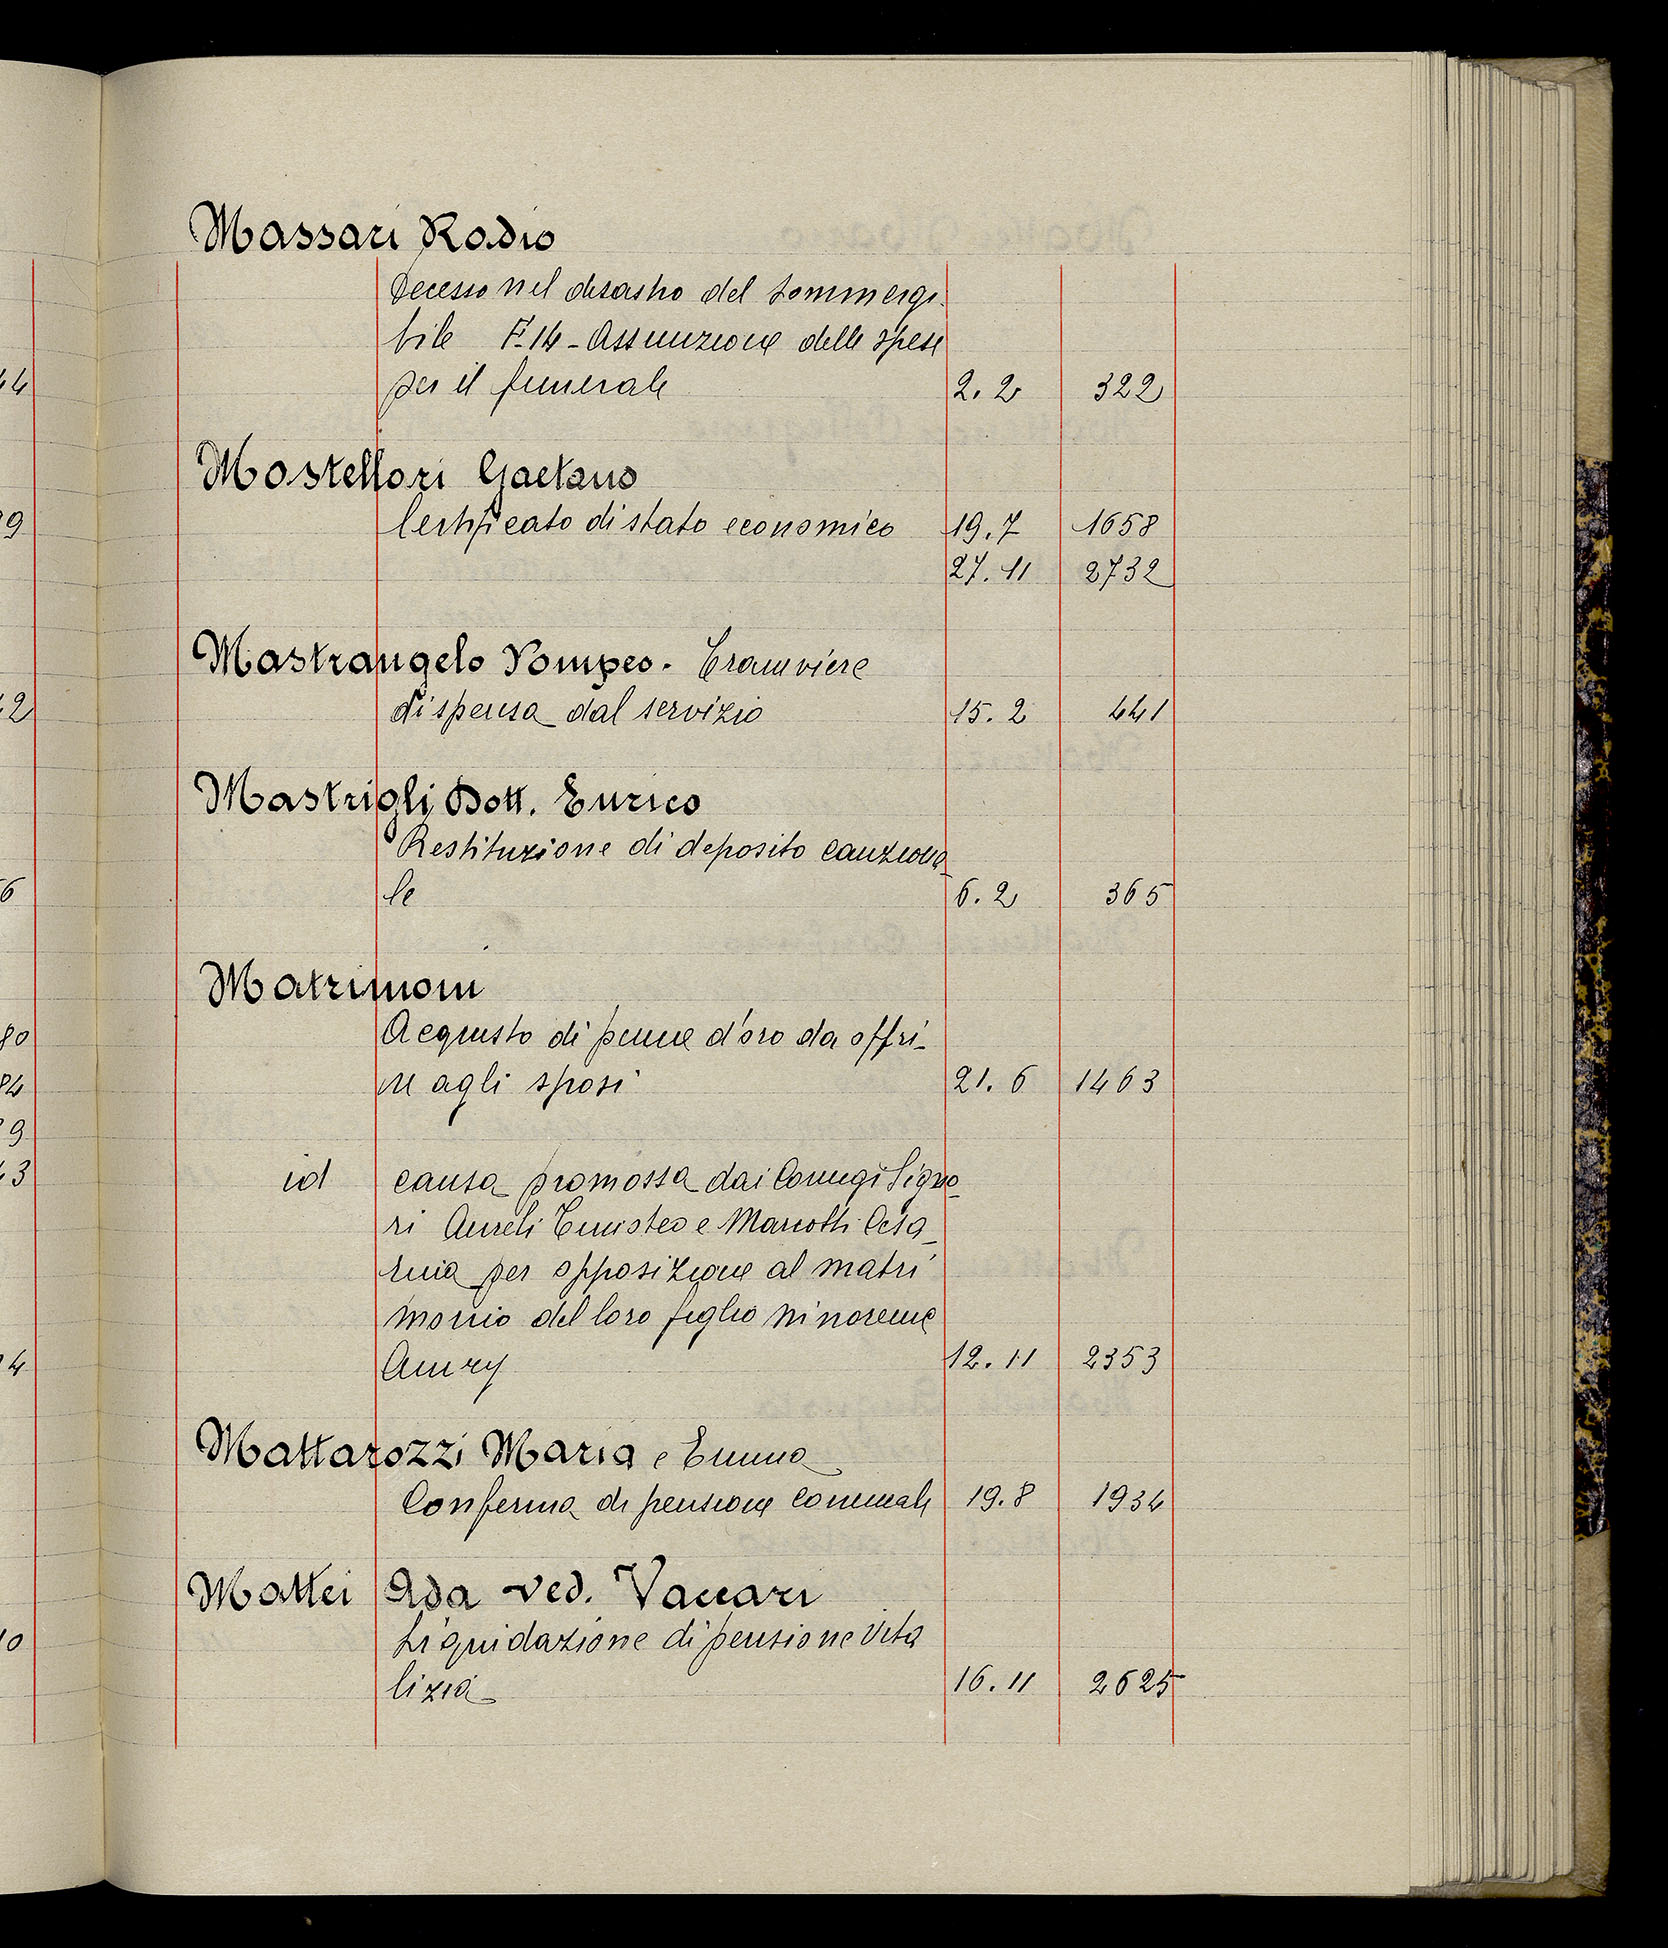 Massari Rodio
Decesso nel disastro del sommergi-
bile F.14 - Assunzione delle spese
per il funerale 2.2 322
Mastellari Gaetano
Certificato di stato economico 19.7 1658
27.11 2732
Mastrangelo Pompeo. Tramviere
dispensa dal servizio 15.2 441
Mastrigli Dott. Enrico
Restituzione di deposito cauziona-
le 6.2 365
Matrimoni
Acquisto di penne d'oro da offri-
re agli sposi 21.6 1463
id causa promossa dai Coniugi Signo-
ri Aureli e Mariotti Cesa-
rina per opposizione al matri
monio del loro figlio minorenne
Amry 12.11 2353
Mattarozzi Maria e Emma
Conferma di pensione comunale 19.8 1934
Mattei Ada ved. Vaccari
Liquidazione di pensione vita
lizia 16.11 2625
44
9
42
6
80
84
9
43
4
10